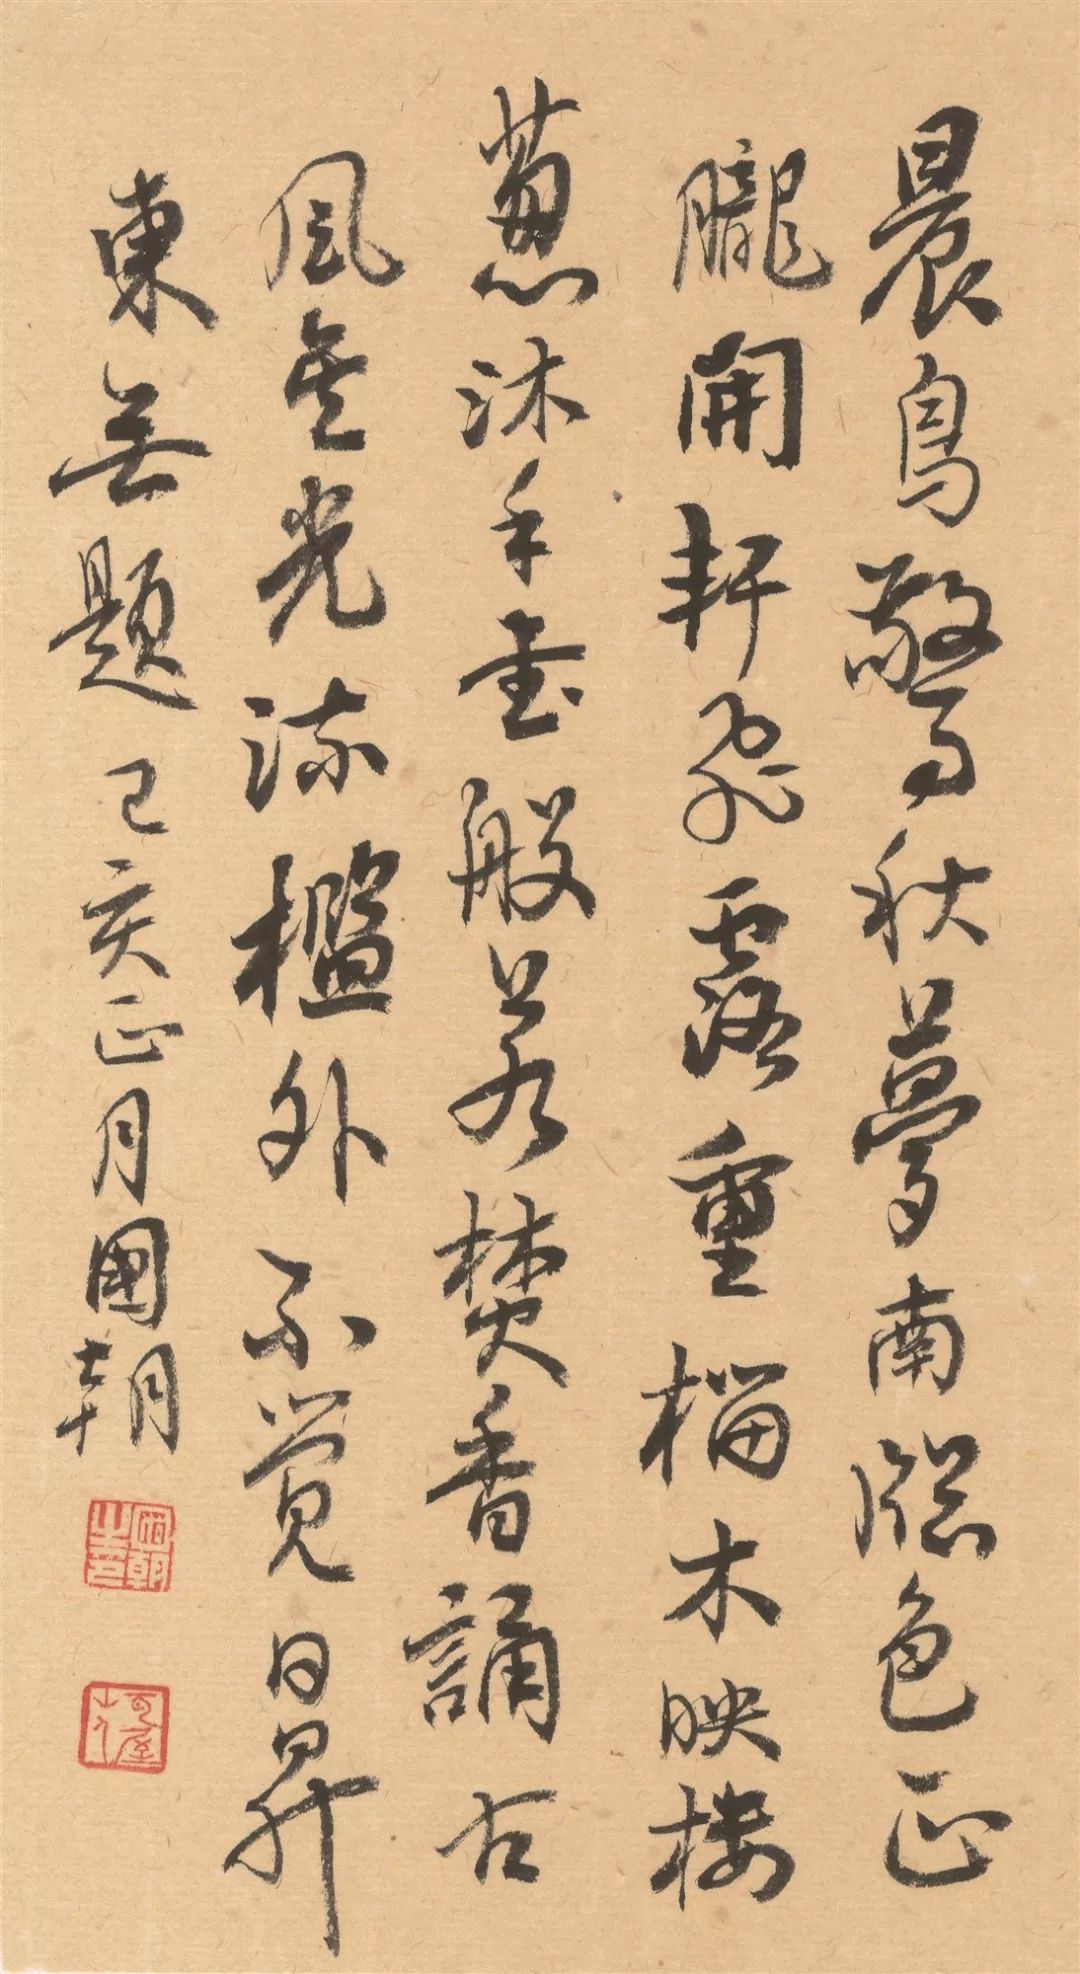 晨鳥驚秋夢南牕色正
朧開軒飛露重榴木映樓
葱沐手書般若焚香誦古
風金光流檻外不覺日昇
東無題己亥正月國朝